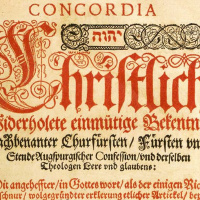 CONCORDIA
יהוה
Christlich
Widerholete einmütige Bekentnu
achbenanter Churfürsten / Fürsten vn
Stende Augspurgischer Confession / vnd derselben
Theologen Lere vnd glaubens:
Mit angeheffter / in Gottes wort / als der einigen Ric
schnur / wolgegründter erklerung etlicher Artickel / bey